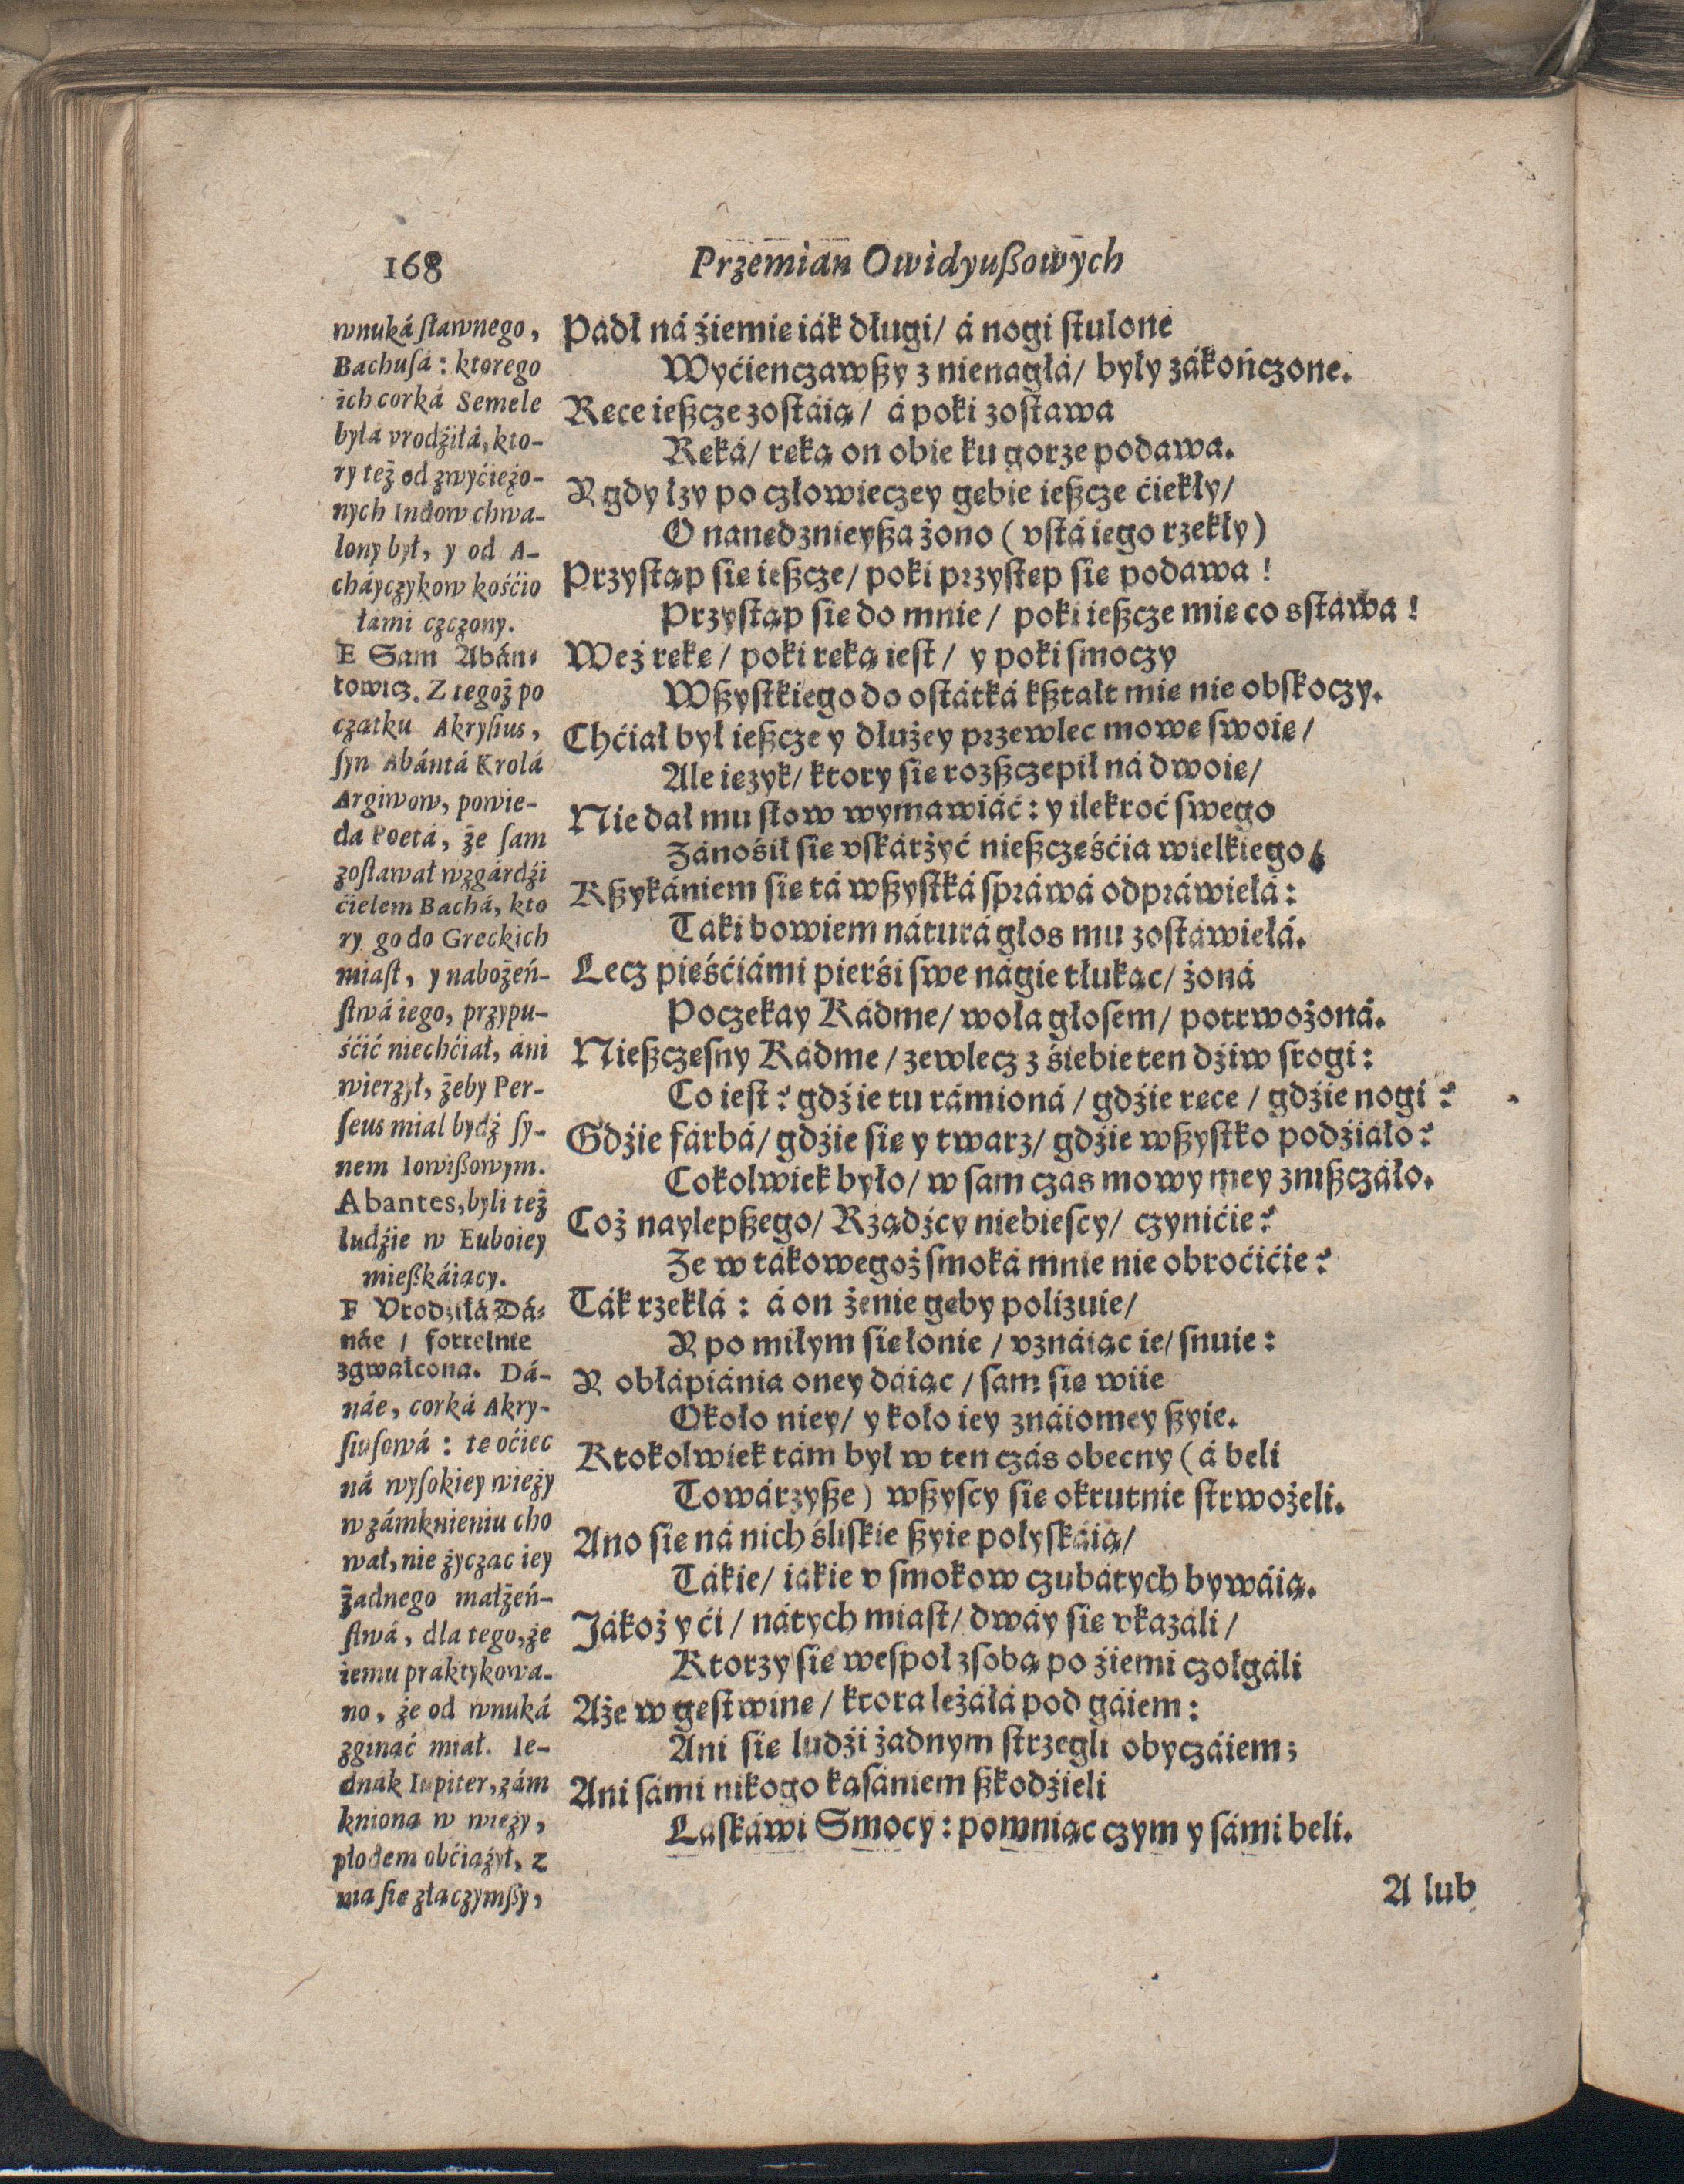 168
Przemian Owidyußowych
wnuká ſławnego,
Bachuſá: ktorego
ich corká Semele
byłá vrodźiłá, kto-
ry też od zwyćiężo-
nych Indow chwa-
lony był, y od A-
cháyczykow kośćio
łámi czczony.
E Sam Abán-
towicz. Z tegoż po
czatku Akryſius,
ſyn Abántá Krolá
Argiwow, powie-
da Poetá, że ſam
zoſtawał wzgárdźi
ćielem Bachá, kto
ry go do Greckich
miaſt, y nabożeń-
ſtwá iego, przypu-
śćić niechćiał, áni
wierzył, żeby Per-
ſeus miał bydź ſy-
nem Iowißowym.
Abantes, byli też
ludźie w Euboiey
mießkáiący.
F Vrodziłá Dá-
náe / fortelnie
zgwałcona. Dá-
náe, corká Akry-
ſiuſowá: te oćiec
ná wyſokiey wieży
w zámknieniu cho
wał, nie życząc iey
żadnego małżeń-
ſtwá, dla tego, że
iemu praktykowa-
no, że od wnuká
zginąć miał. Ie-
dnák Iupiter, zám
kniona w wieży,
płodem obćiążył, z
nia ſie złączymßy,
Padł ná źiemie iák długi/ á nogi ſtulone
Wyćienczawßy z nienagłá/ były zákończone.
Rece ießcze zoſtáią/ á poki zoſtawa
Reká/ reką on obie ku gorze podawa.
Y gdy łzy po człowieczey gebie ießcze ćiekły/
O nanedznieyßa żono (vſtá iego rzekły)
Przyſtąp ſie ießcze/ poki przyſtep ſie podawa!
Przyſtąp ſie do mnie/ poki ießcze mie co sſtawa!
Weź reke/ poki reką ieſt/ y poki ſmoczy
Wßyſtkiego do oſtátká kßtałt mie nie obſkoczy.
Chćiał był ießcze y dłużey przewlec mowe ſwoie/
Ale iezyk/ ktory ſie rozßczepił ná dwoie/
Nie dał mu ſłow wymawiáć: y ilekroć ſwego
Zánośił ſie vſkárżyć nießcześćia wielkiego,
Kßykániem ſie tá wßyſtká ſpráwá odpráwiełá:
Táki bowiem náturá głos mu zoſtáwiełá.
Lecz pieśćiámi pierśi ſwe nágie tłukąc/ żoná
Poczekay Kádme/ woła głoſem/ potrwożoná.
Nießczeſny Kádme/ zewlecz z śiebie ten dźiw ſrogi:
Co ieſt? gdźie tu rámioná/ gdźie rece/ gdźie nogi?
Gdźie fárbá/ gdźie ſie y twarz/ gdźie wßyſtko podźiáło?
Cokolwiek było/ w ſam czas mowy mey znißczáło.
Coż naylepßego/ Rządźcy niebieſcy/ czynićie?
Ze w tákowegoż ſmoká mnie nie obroćićie?
Ták rzekłá: á on żenie geby polizuie/
Y po miłym ſie łonie/ vznáiąc ie/ ſnuie:
Y obłápiánia oney dáiąc/ ſam ſie wiie
Około niey/ y koło iey znáiomey ßyie.
Ktokolwiek tám był w ten czás obecny (á beli
Towárzyße) wßyſcy ſie okrutnie ſtrwożeli.
Ano ſie ná nich śliſkie ßyie połyſkáią/
Tákie/ iákie v ſmokow czubátych bywáią.
Jákoż y ći/ nátych miaſt/ dwáy ſie vkazáli/
Ktorzy ſie weſpoł z ſobą po źiemi czołgáli
Aże w geſtwine/ ktora leżáłá pod gáiem:
Ani ſie ludźi żadnym ſtrzegli obyczáiem;
Ani ſámi nikogo kąſániem ßkodźieli
Łaſkáwi Smocy: pomniąc czym y ſámi beli.
A lub